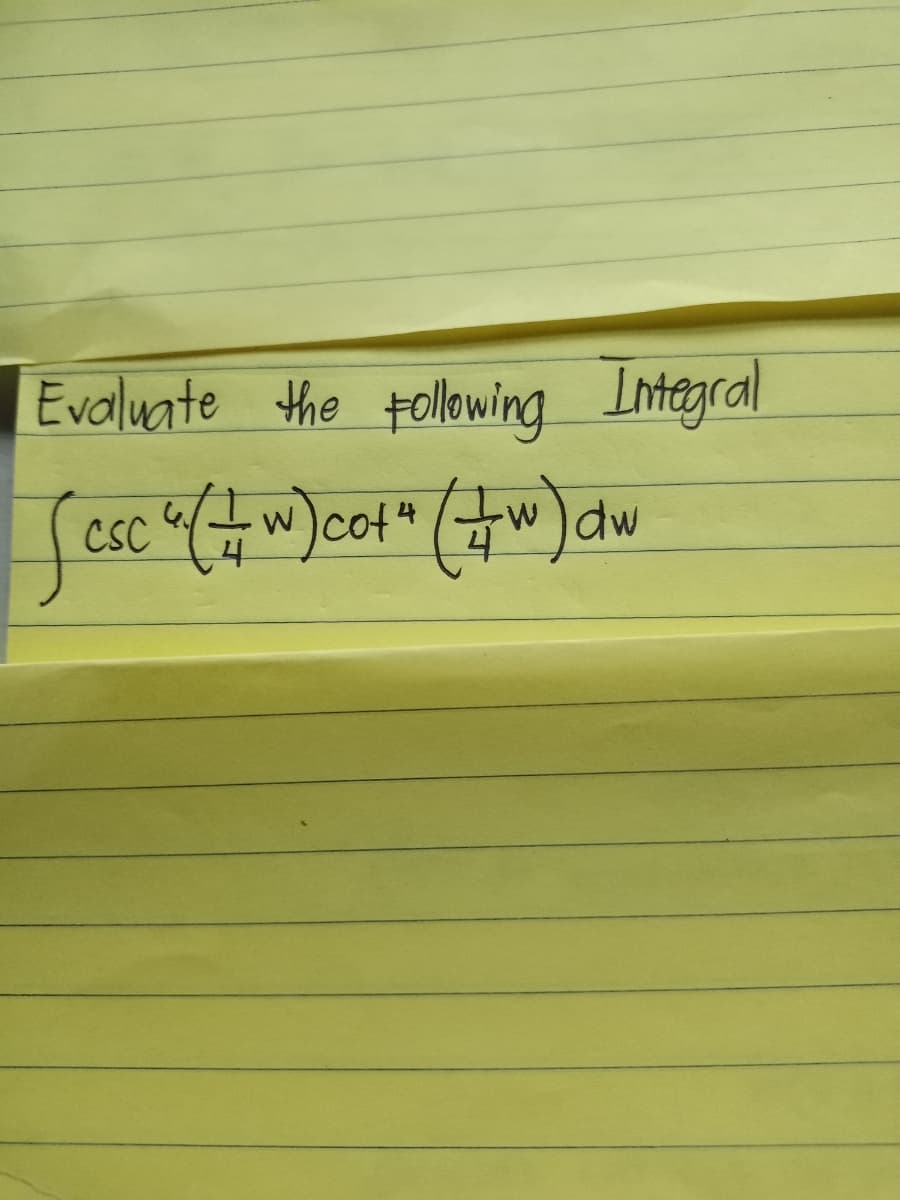 Evaluate the following Integral
∫ csc⁶(1/4 w) cot⁴(1/4 w) dw